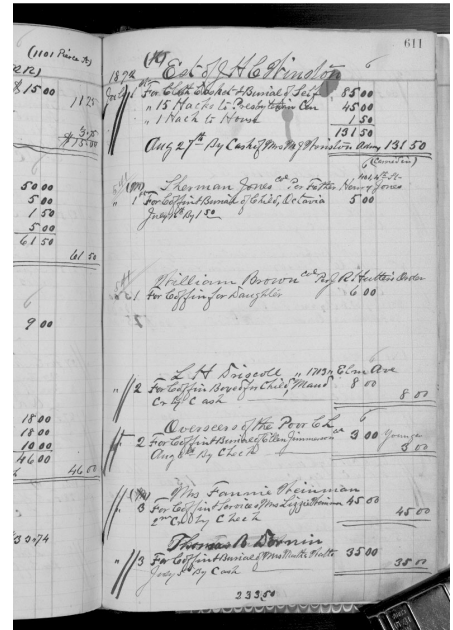 (1101 Pierce St)
$15.00
11 25
3.75
$15.00
50 00
5 00
1 50
5 00
61 50
61 50
9 00
18 00
18 00
10 00
46 00
46 00
33.74
611
1892 Est of J H C Winston 6
For Cloth Casket & Burial of Self 85 00
" 15 Hacks to Presbyterian Cem 45 00
" 1 Hack to House 1 50
131 50
Aug 27th By Cash of Mrs Winston Admx 131 50
6 (Carried in)
Sherman Jones col Per Father Henry Jones
" 1 For Coffin & Burial of Child, Octavia 5 00
July By 1 50
William Brown col Per J R Order
1 For Coffin for Daughter 6 00
L H Driscoll " 1713 Elm Ave
" 2 For Coffin Boxed for Child, Maud 8 00
Cr by Cash 8 00
Overseers of the Poor 6
" 2 For Coffin & Burial of Ellen col 3 00 Younger
Aug By Check 3 00
Mrs Fannie
3 For Coffin & Service of Mrs Lizzie 45 00
Cr by Check 45 00
Thomas B Dornin
" 3 For Coffin & Burial of Mrs 35 00
July 5th By Cash 35 00
233 50